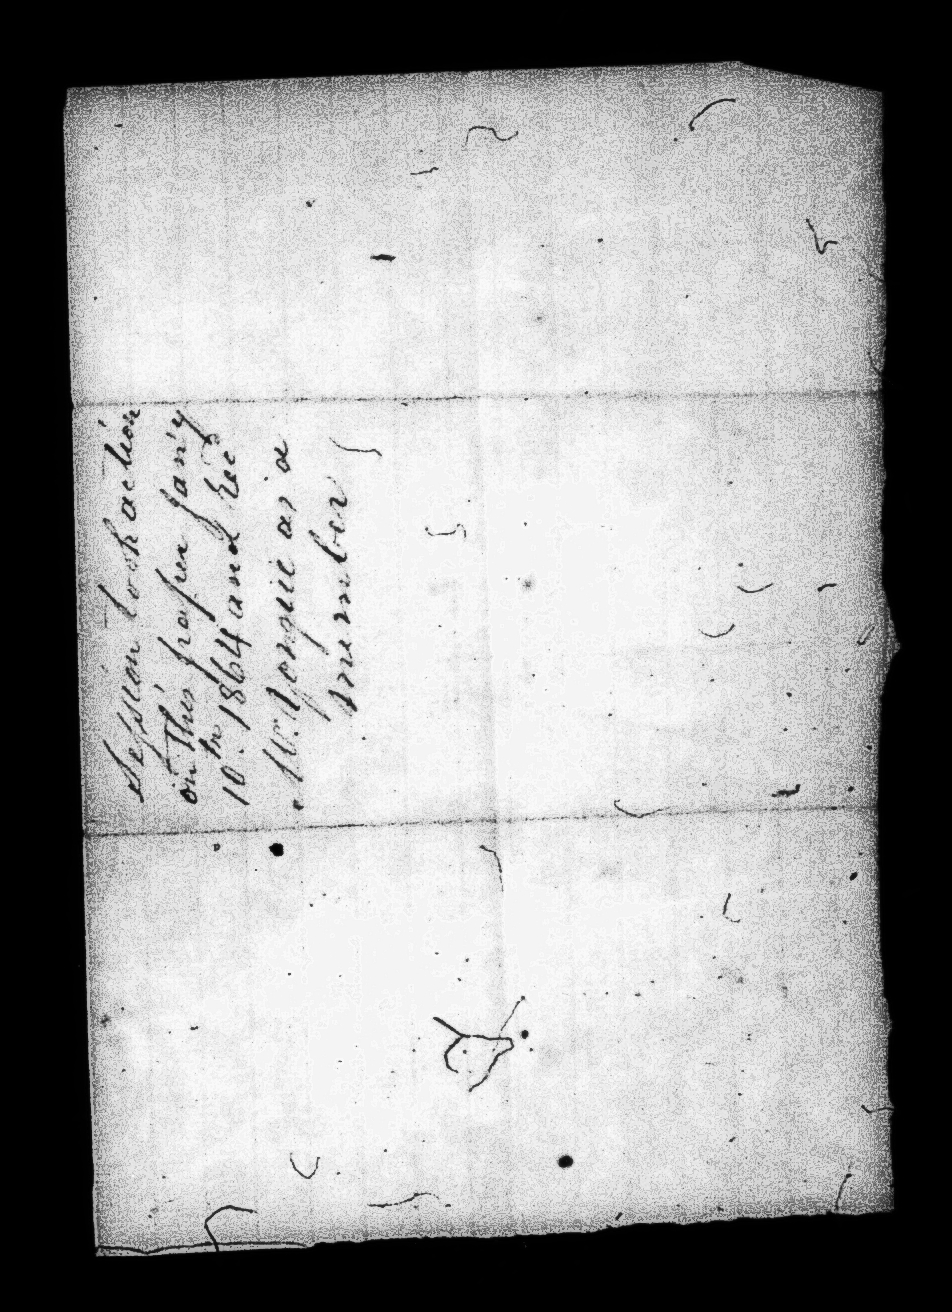 Session took action
on this paper Jany
10th. 1864 and Recd
W. Yongue as a
member